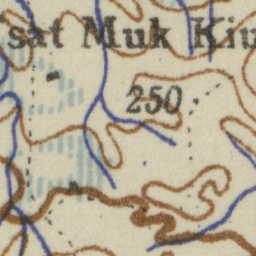 sat Muk Kiu
250